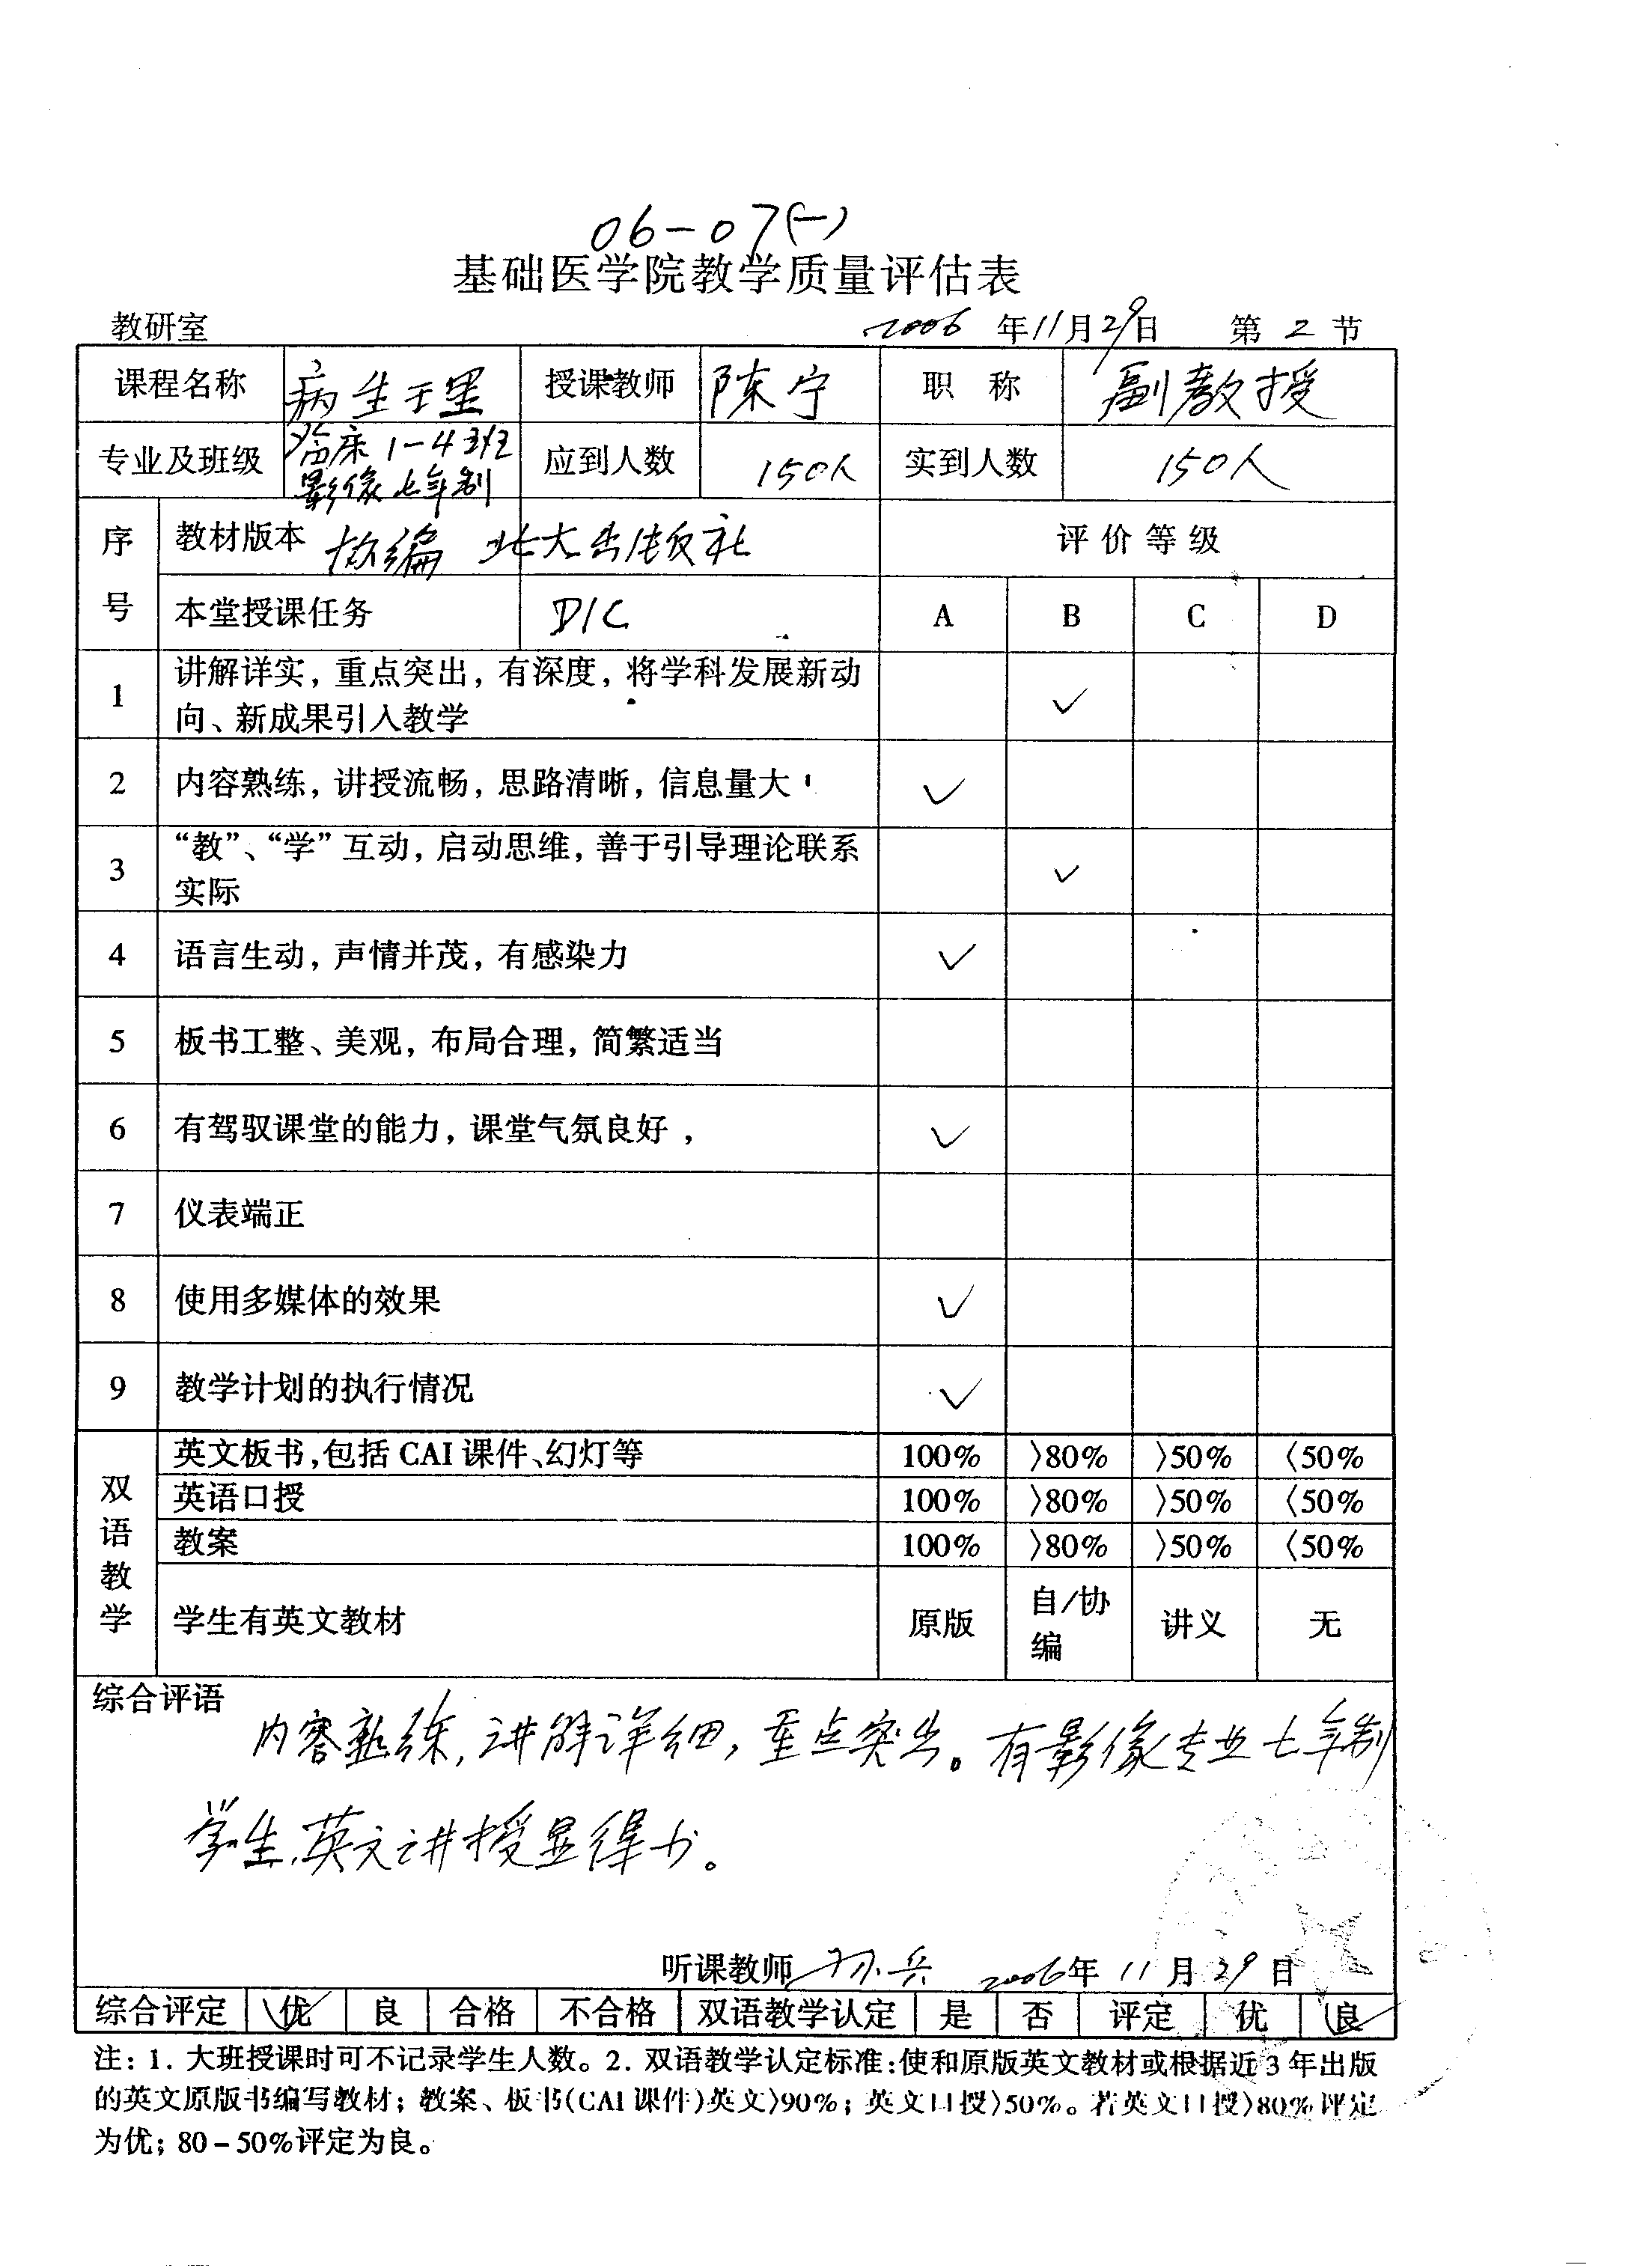 06-07(一)
基础医学院教学质量评估表
教研室 2006 年11月29日 第 2 节
课程名称 病生于里 授课教师 陈宁 职 称 副教授
专业及班级 临床1-4班 影像七年制 应到人数 150人 实到人数 150人
序号 教材版本 协编 北大出版社 评 价 等 级
本堂授课任务 DIC A B C D
1 讲解详实，重点突出，有深度，将学科发展新动
向、新成果引入教学 ✓
2 内容熟练，讲授流畅，思路清晰，信息量大 ✓
3 “教”、“学”互动，启动思维，善于引导理论联系
实际 ✓
4 语言生动，声情并茂，有感染力 ✓
5 板书工整、美观，布局合理，简繁适当
6 有驾驭课堂的能力，课堂气氛良好， ✓
7 仪表端正
8 使用多媒体的效果 ✓
9 教学计划的执行情况 ✓
双语教学 英文板书,包括 CAI 课件、幻灯等 100% 〉80% 〉50% 〈50%
英语口授 100% 〉80% 〉50% 〈50%
教案 100% 〉80% 〉50% 〈50%
学生有英文教材 原版 自/协编 讲义 无
综合评语
内容熟练,讲解详细,重点突出。有影像专业七年制
学生,英文讲授显得少。
听课教师 孙兵 2006年 11 月 29 日
综合评定 优 良 合格 不合格 双语教学认定 是 否 评定 优 良
注：1. 大班授课时可不记录学生人数。2. 双语教学认定标准:使和原版英文教材或根据近3年出版
的英文原版书编写教材；教案、板书(CAI 课件)英文〉90%；英文口授〉50%。若英文口授〉80%评定
为优；80-50%评定为良。